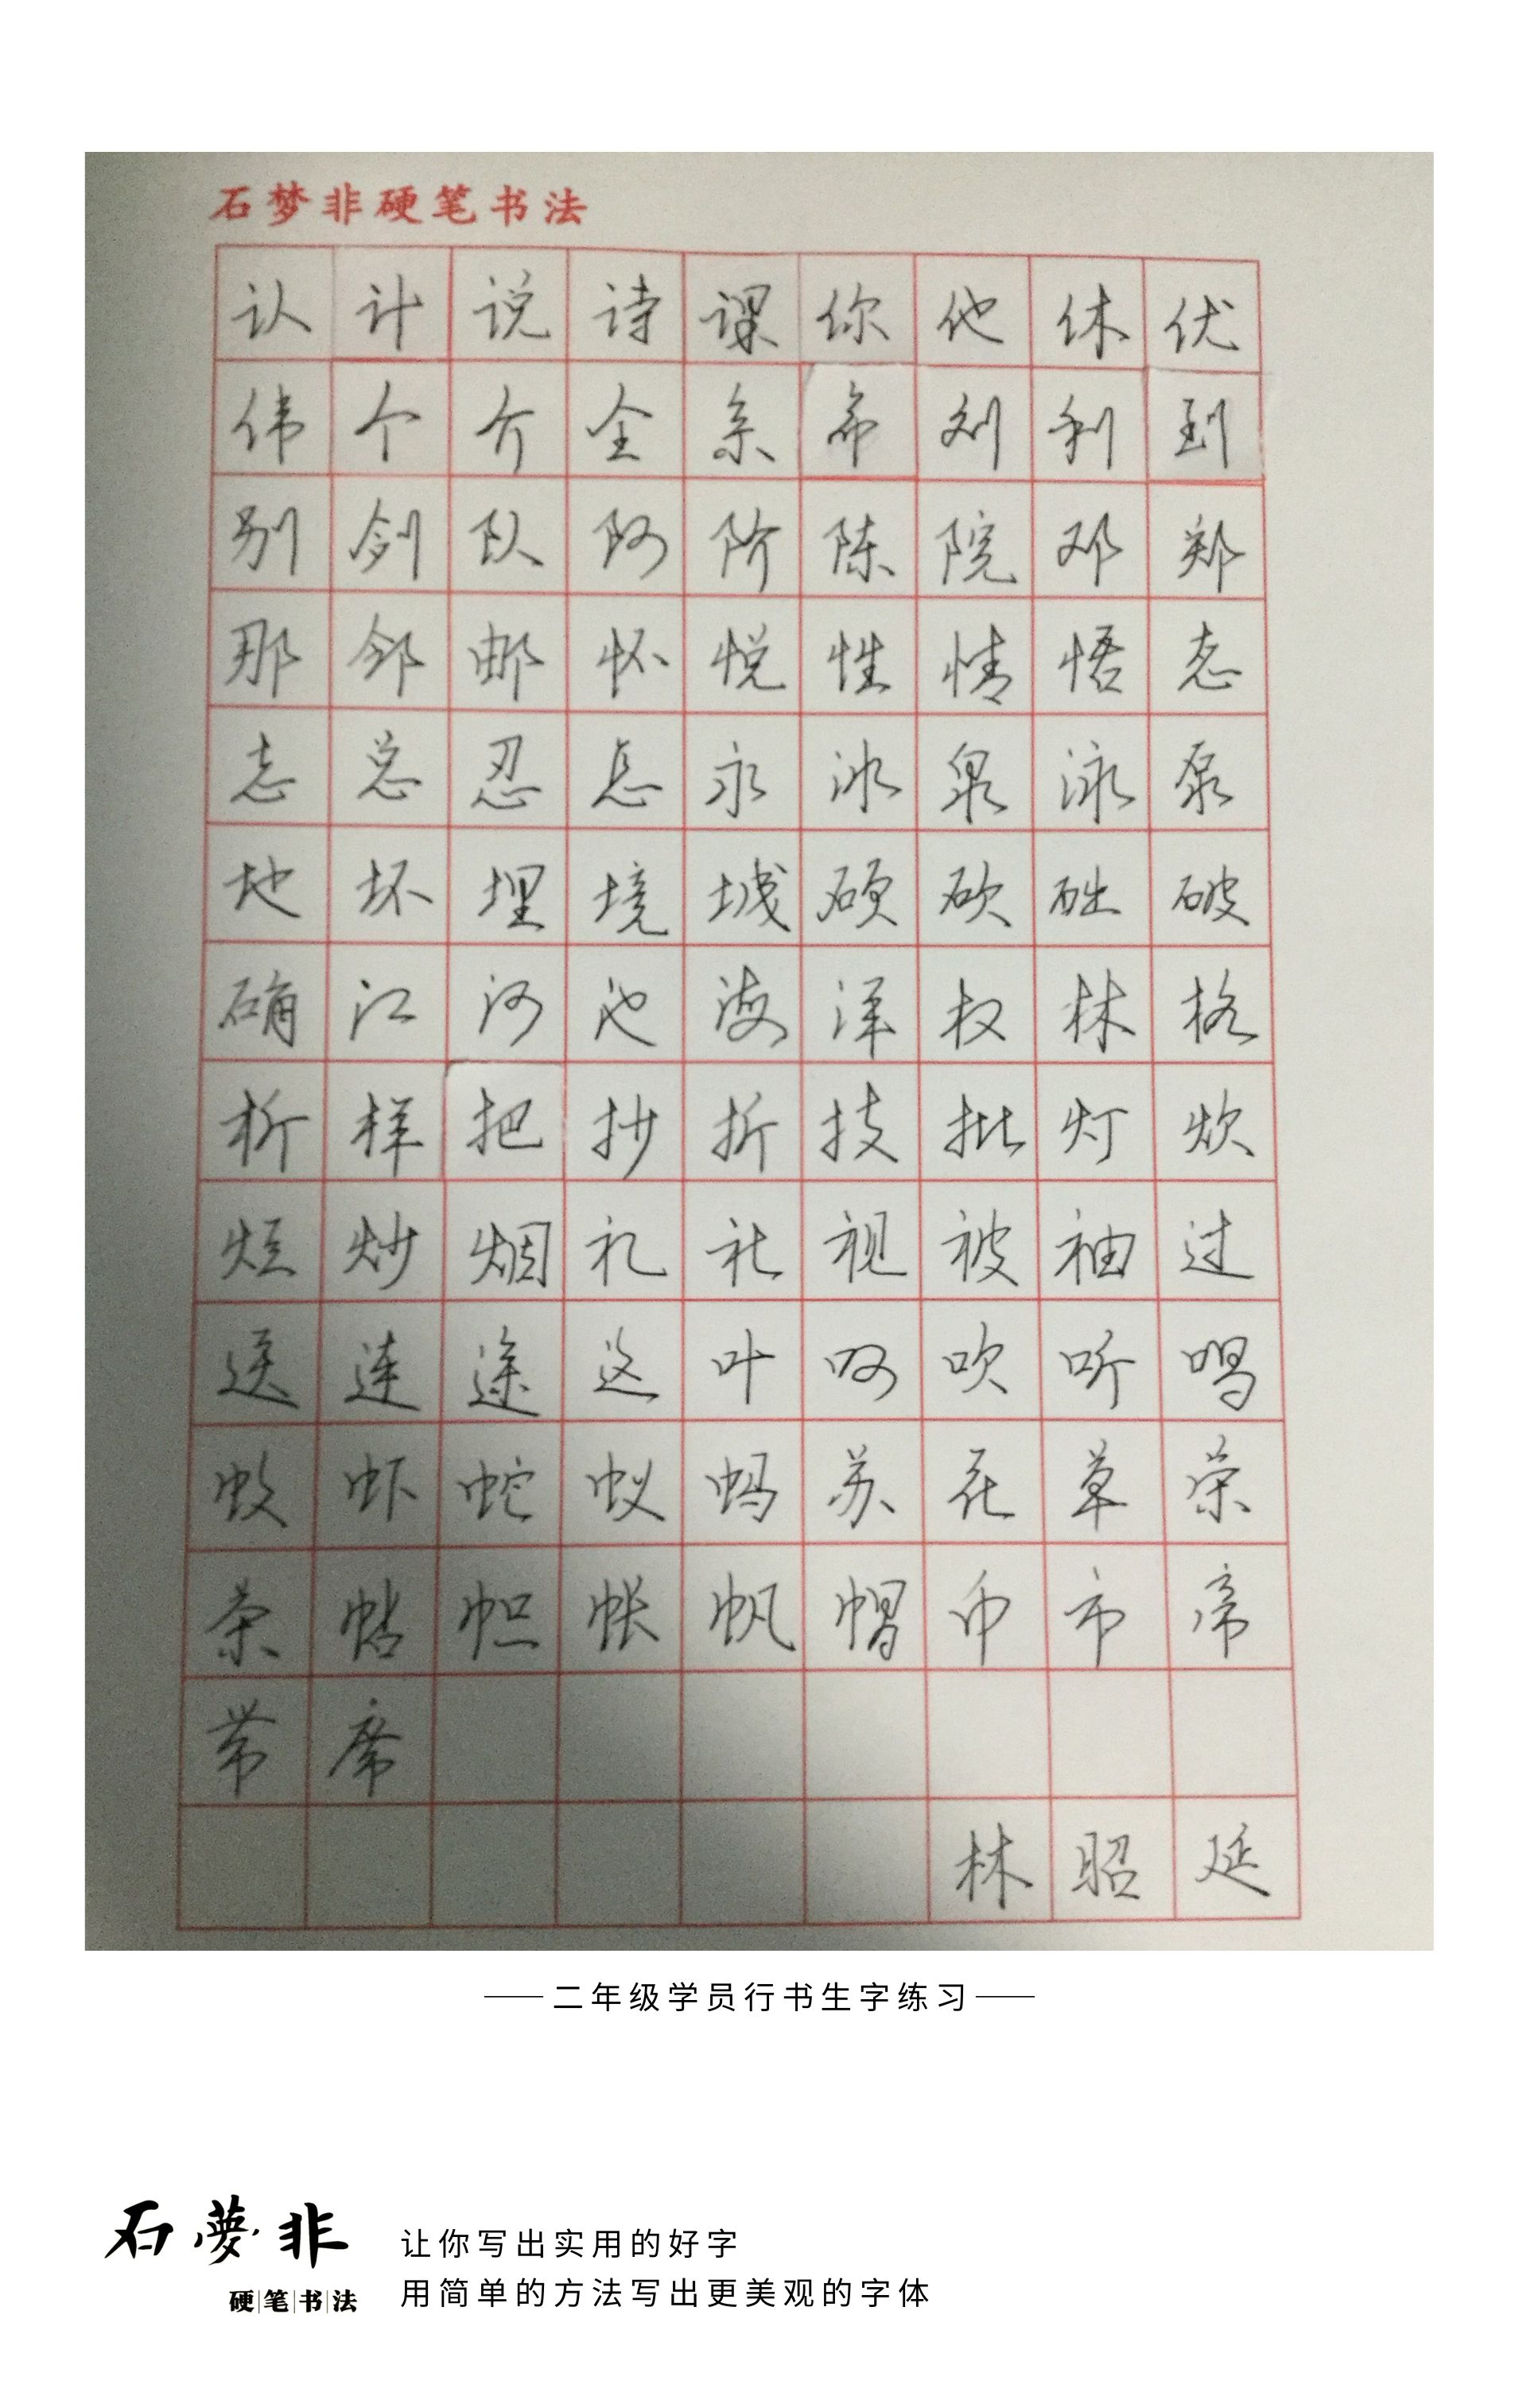 石梦非硬笔书法
认计说诗课你他休伏
伟个介全余命刘利到
别剑队阿阶陈院邓郑
那邻邮怀悦性情悟态
志总忍怎永冰泉泳泵
地坏埋境城硕砍础破
确江河池海洋权林格
析样把抄折技批灯炊
炒烟礼社视被袖过
送连途这叶呵吹听唱
蚊虾蛇蚁蚂苏花草荣
茶帖帜帐帆帽币市帝
带席
林昭延
二年级学员行书生字练习
石夢非
硬笔书法
让你写出实用的好字
用简单的方法写出更美观的字体